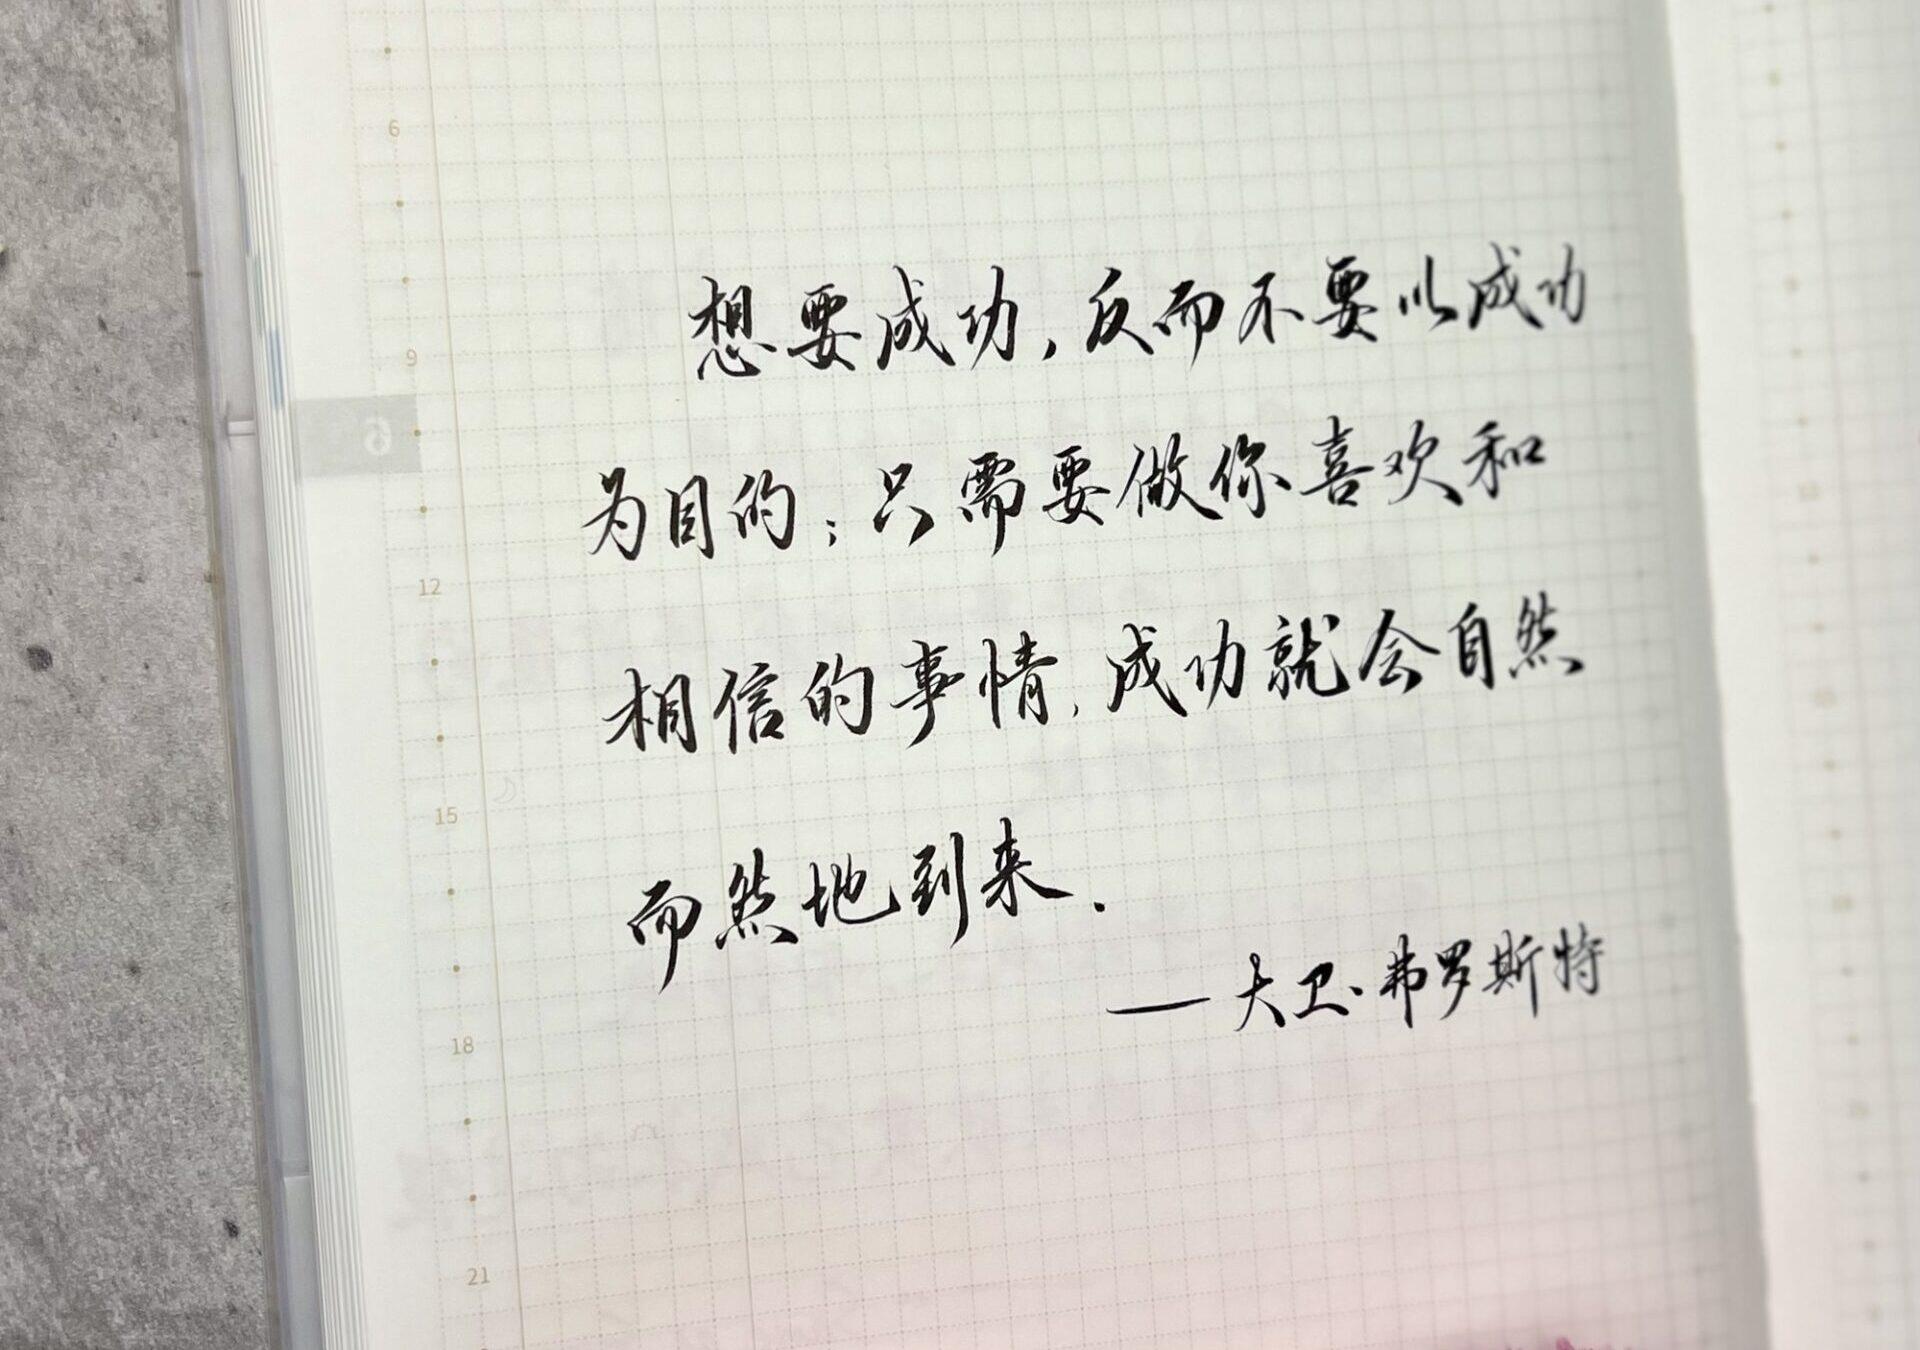 6
9
6
12
15
18
21
想要成功，反而不要以成功
为目的；只需要做你喜欢和
相信的事情，成功就会自然
而然地到来．
——大卫·弗罗斯特